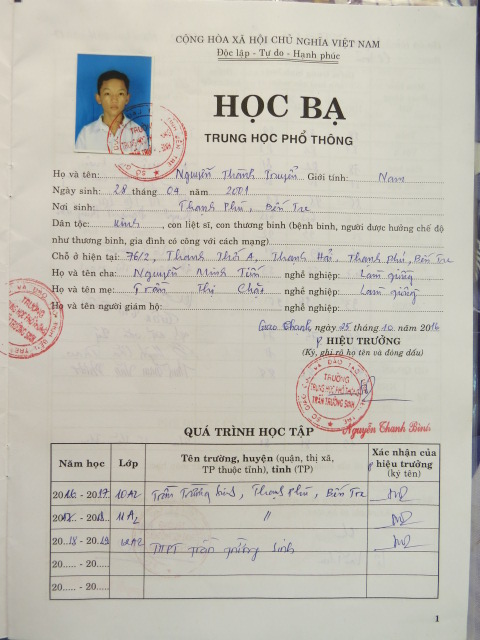 CỘNG HÒA XÃ HỘI CHỦ NGHĨA VIỆT NAM
Độc lập - Tự do - Hạnh phúc
HỌC BẠ
TRUNG HỌC PHỔ THÔNG
Họ và tên: Nguyễn Thanh Truyền Giới tính: Nam
Ngày sinh: 28 tháng 04 năm 2001
Nơi sinh: Thạnh Phú, Bến Tre
Dân tộc: Kinh, con liệt sĩ, con thương binh (bệnh binh, người được hưởng chế độ
như thương binh, gia đình có công với cách mạng)
Chỗ ở hiện tại: 76/2, Thạnh Thới A, Thạnh Hải, Thạnh Phú, Bến Tre
Họ và tên cha: Nguyễn Minh nghề nghiệp: Làm
Họ và tên mẹ: Trần Thị nghề nghiệp: Làm
Họ và tên người giám hộ: nghề nghiệp:
Giao Thạnh, ngày 25 tháng 10 năm 2016
P HIỆU TRƯỞNG
(Ký, ghi rõ họ tên và đóng dấu)
TRƯỜNG
TRUNG HỌC PHỔ THÔNG
TRẦN TRƯỜNG SINH
Nguyễn Thanh Bình
QUÁ TRÌNH HỌC TẬP
Năm học Lớp Tên trường, huyện (quận, thị xã, TP thuộc tỉnh), tỉnh (TP) Xác nhận của P hiệu trưởng (ký tên)
2016 - 2017 10A2 Trần Trường Sinh, Thạnh Phú, Bến Tre
11A2 //
2018 - 2019 12A2 THPT Trần Trường Sinh
20..... - 20.....
20..... - 20.....
1